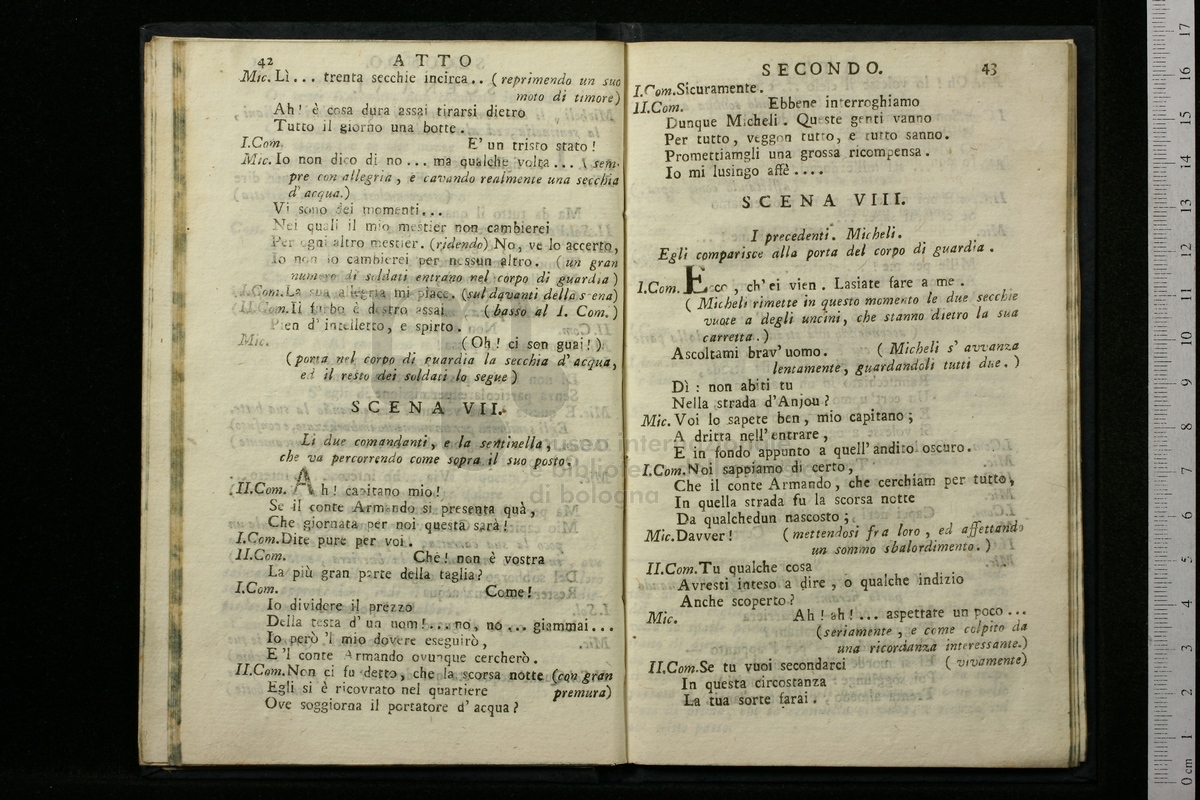 42 ATTO
Mic. Lì... trenta secchie incirca.. (reprimendo un suo
moto di timore)
Ah! è cosa dura assai tirarsi dietro
Tutto il giorno una botte.
I.Com. E' un tristo stato!
Mic. Io non dico di no... ma qualche volta... (sem-
pre con allegria, e cavando realmente una secchia
d'acqua.)
Vi sono dei momenti...
Nei quali il mio mestier non cambierei
Per ogni altro mestier. (ridendo) No, ve lo accerto,
Io non lo cambierei per nessun altro. (un gran
numero di soldati entrano nel corpo di guardia)
I.Com. La sua allegria mi piace. (sul davanti della scena)
II.Com. Il furbo è destro assai (basso al I. Com.)
Pien d'intelletto, e spirto.
Mic. (Oh! ci son guai!)
(porta nel corpo di guardia la secchia d'acqua,
ed il resto dei soldati lo segue)
SCENA VII.
Li due comandanti, e la sentinella,
che va percorrendo come sopra il suo posto.
II.Com. Ah! capitano mio!
Se il conte Armando si presenta quà,
Che giornata per noi questa sarà!
I.Com. Dite pure per voi.
II.Com. Che! non è vostra
La più gran parte della taglia?
I.Com. Come!
Io dividere il prezzo
Della testa d'un uom!... no, no... giammai...
Io però 'l mio dovere eseguirò,
E 'l conte Armando ovunque cercherò.
II.Com. Non ci fu detto, che la scorsa notte (con gran
Egli si è ricovrato nel quartiere premura)
Ove soggiorna il portatore d'acqua?
SECONDO. 43
I.Com. Sicuramente.
II.Com. Ebbene interroghiamo
Dunque Micheli. Queste genti vanno
Per tutto, veggon tutto, e tutto sanno.
Promettiamgli una grossa ricompensa.
Io mi lusingo affè....
SCENA VIII.
I precedenti. Micheli.
Egli comparisce alla porta del corpo di guardia.
I.Com. Ecco, ch'ei vien. Lasiate fare a me.
(Micheli rimette in questo momento le due secchie
vuote a degli uncini, che stanno dietro la sua
carretta.)
Ascoltami brav'uomo. (Micheli s'avvanza
lentamente, guardandoli tutti due.)
Dì: non abiti tu
Nella strada d'Anjou?
Mic. Voi lo sapete ben, mio capitano;
A dritta nell'entrare,
E in fondo appunto a quell'andito oscuro.
I.Com. Noi sappiamo di certo,
Che il conte Armando, che cerchiam per tutto,
In quella strada fu la scorsa notte
Da qualchedun nascosto;
Mic. Davver! (mettendosi fra loro, ed affettando
un sommo sbalordimento.)
II.Com. Tu qualche cosa
Avresti inteso a dire, o qualche indizio
Anche scoperto?
Mic. Ah! ah!... aspettate un poco...
(seriamente, e come colpito da
una ricordanza interessante.)
II.Com. Se tu vuoi secondarci (vivamente)
In questa circostanza
La tua sorte farai.
museo internazionale
e biblioteca della musica
di bologna
0 cm 1 2 3 4 5 6 7 8 9 10 11 12 13 14 15 16 17